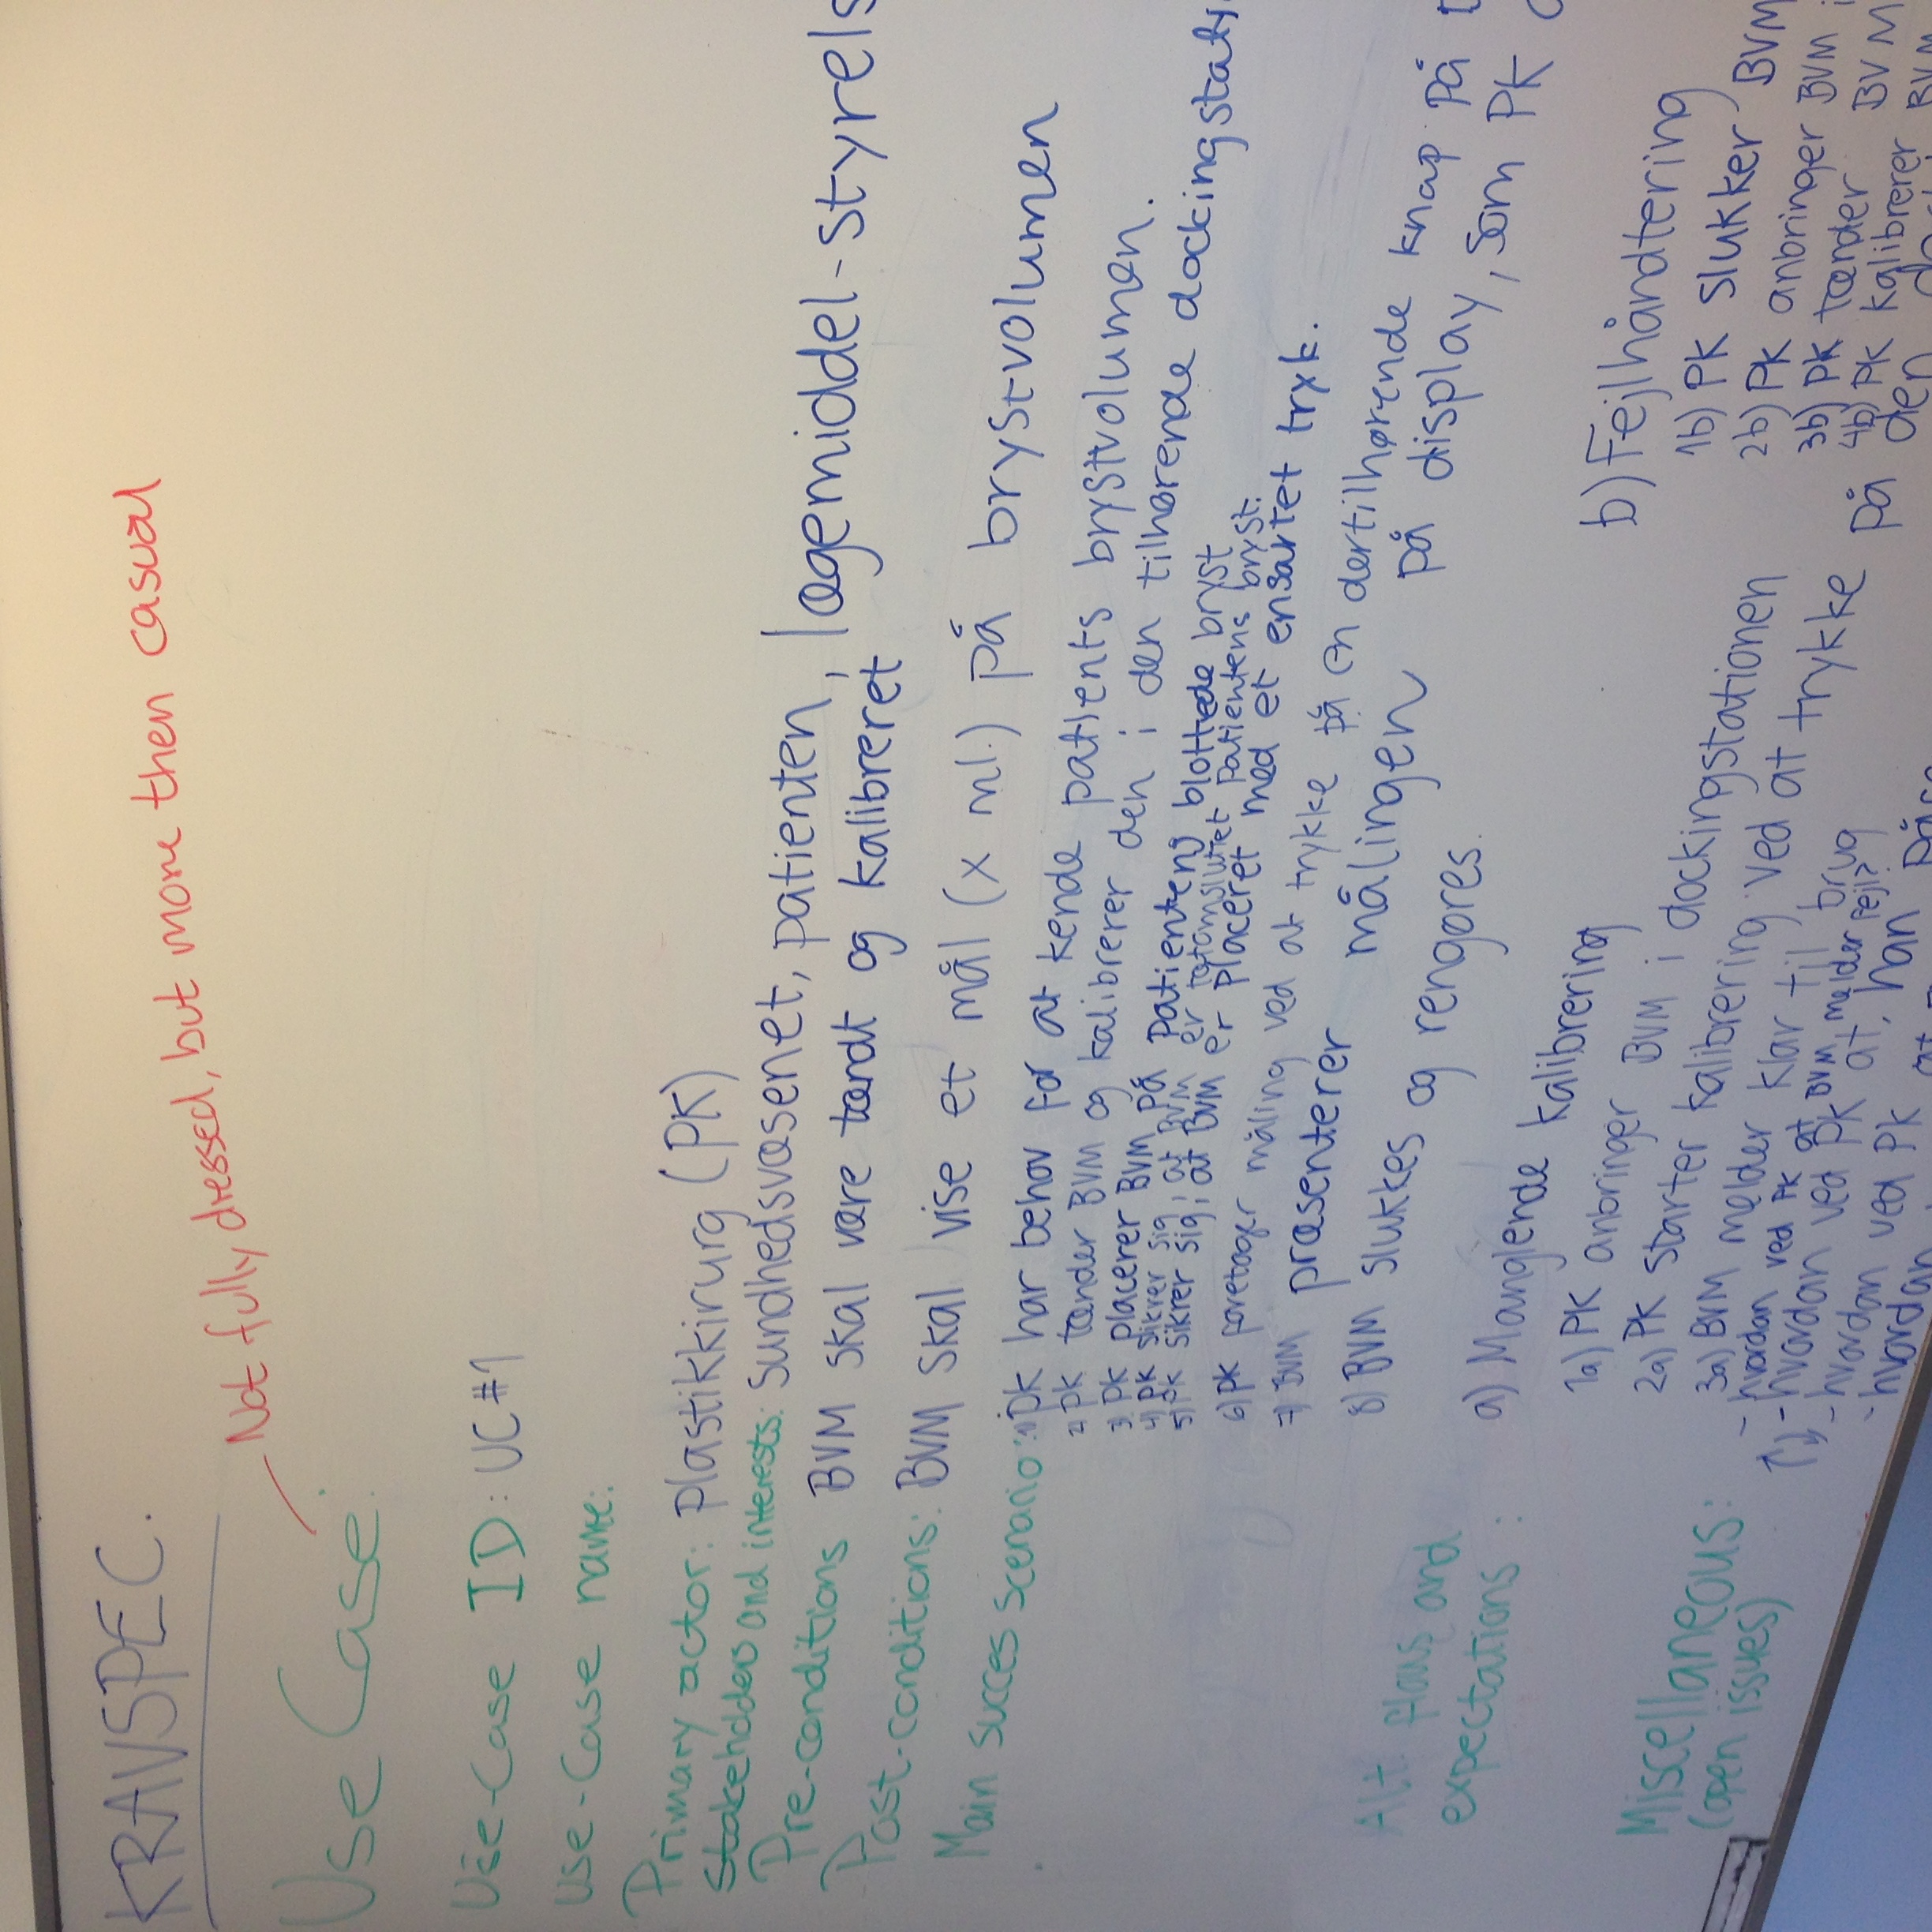 KRAVSPEC.
Not fully dressed, but more then casual
Use Case:
Use-Case ID: UC#1
Use-Case name:
Primary actor: Plastikkirurg (PK)
Stakeholders and interests: sundhedsvæsenet, patienten, lægemiddel-styrels
Pre-conditions BVM skal være tændt og kalibreret
Post-conditions: BVM skal vise et mål (x ml.) på brystvolumen
Main succes scenario: 1) PK har behov for at kende patients brystvolumen.
2) PK tænder BVM og kalibrerer den i den tilhørende dockingstati
3) PK placerer BVM på patientens blottede bryst
4) PK sikrer sig, at BVM er tætomsluttet patientens bryst.
5) PK sikrer sig, at BVM er placeret med et ensartet tryk.
6) PK foretager måling ved at trykke på en dertilhørende knap på
7) BVM præsenterer målingen på display, som PK
8) BVM slukkes og rengøres.
Alt. flows and
expectations:
a) Manglende kalibrering
1a) PK anbringer BVM i dockingstationen
2a) PK starter kalibrering ved at trykke på den
3a) BVM melder klar til brug
b) Fejlhåndtering
1b) PK slukker BVM
2b) PK anbringer BVM i
3b) PK tænder BVM
4b) PK kalibrerer BVM
Miscellaneous:
(open issues)
- hvordan ved PK at BVM melder fejl?
- hvordan ved PK at, han
- hvordan ved PK at
- hvordan